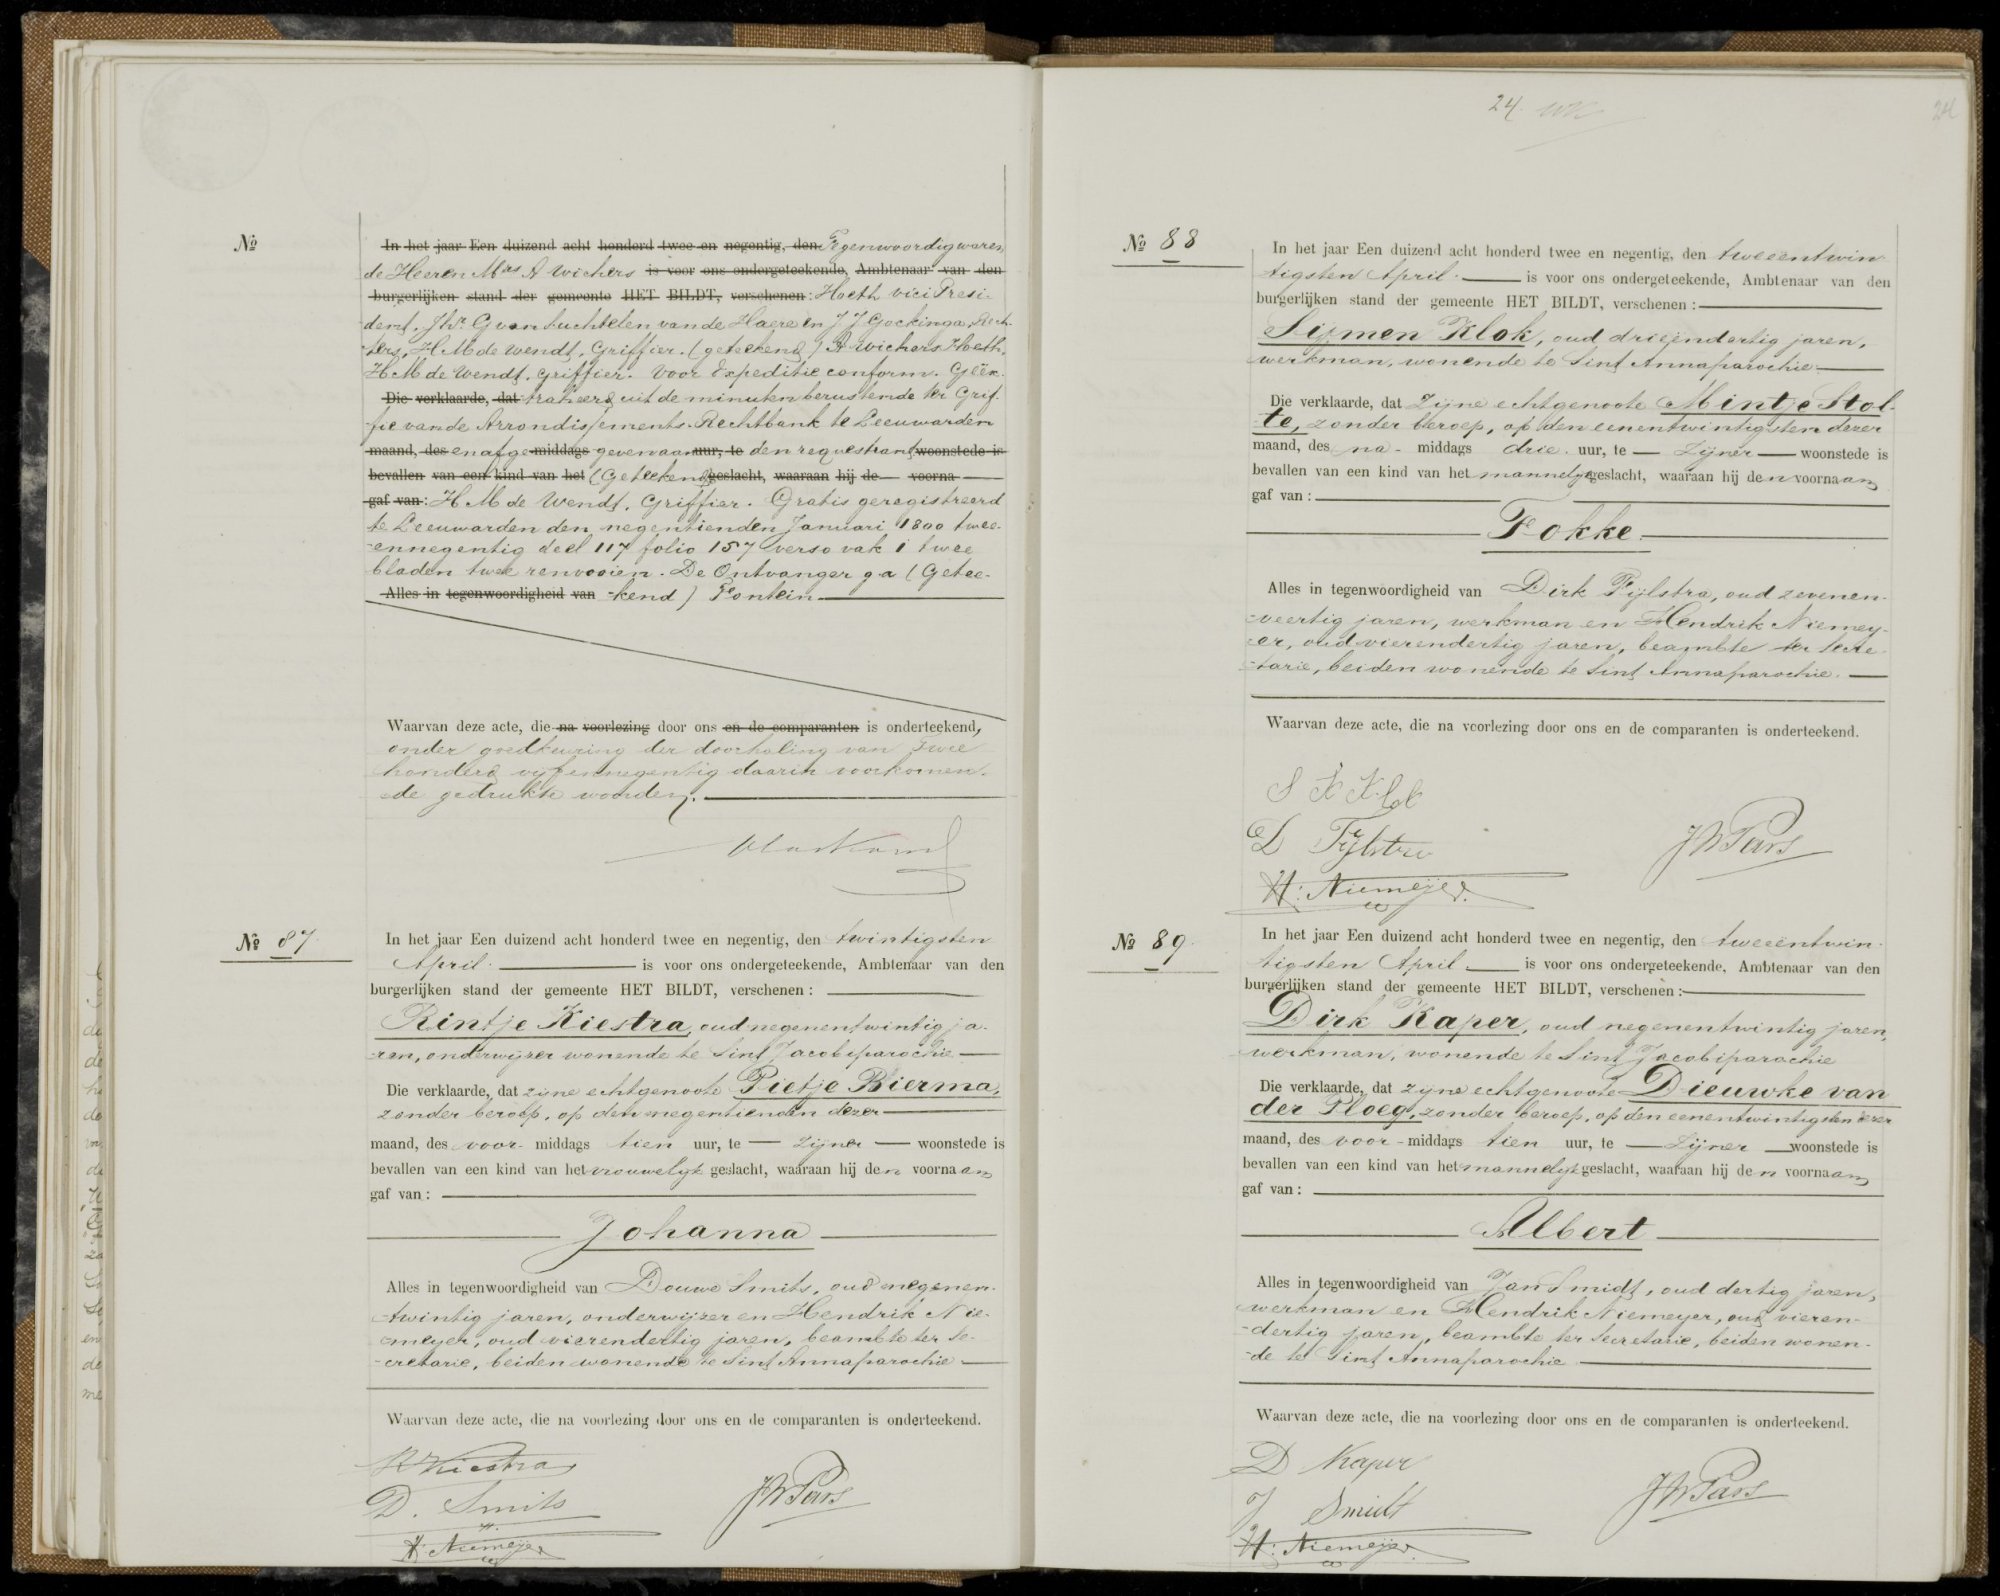 No
In het jaar Een duizend acht honderd twee en negentig, den Tegenwoordig waren
de Heeren Mrs A Wichers is voor ons ondergeteekende, Ambtenaar van den
burgerlijken stand der gemeente HET BILDT, verschenen: Hoeth vice Presi-
dent, Jhr G van buchtelen van de Haere en J J Gockinga, Rech-
ters, H M de Wendt, Griffier. (geteekend) A Wichers Hoeth,
H M de Wendt, Griffier. Voor Expeditie conform. Geëx-
Die verklaarde, dat traheerd uit de minuten berustende ter Grif-
fie van de Arrondissements-Rechtbank te Leeuwarden
maand, des en afge middags geven aan uur, te den requestrant woonstede is
bevallen van een kind van het (Geteekend) geslacht, waaraan hij de voorna
gaf van: H M de Wendt, Griffier. Gratis geregistreerd
te Leeuwarden den negentienden Januari 1800 twee-
ennegentig deel 117 folio 157 verso vak 1 twee
bladen twee renvooien. De Ontvanger g a (Getee-
Alles in tegenwoordigheid van -kend) Fontein
Waarvan deze acte, die na voorlezing door ons en de comparanten is onderteekend,
onder goedkeuring der doorhaling van Twee
honderd vijfennegentig daarin voorkomen-
de gedrukte woorden.
No 87
In het jaar Een duizend acht honderd twee en negentig, den twintigsten
April is voor ons ondergeteekende, Ambtenaar van den
burgerlijken stand der gemeente HET BILDT, verschenen:
Rintje Kiestra, oud negenentwintig ja-
ren, onderwijzer wonende te Sint Jacobiparochie
Die verklaarde, dat zijne echtgenoote Pietje Bierma,
zonder beroep, op den negentienden dezer
maand, des voor- middags tien uur, te zijner woonstede is
bevallen van een kind van het vrouwelijk geslacht, waaraan hij den voornaam
gaf van:
Johanna
Alles in tegenwoordigheid van Douwe Smits, oud negenen-
twintig jaren, onderwijzer en Hendrik Nie-
meyer, oud vierendertig jaren, beambte ter se-
cretarie, beiden wonende te Sint Annaparochie
Waarvan deze acte, die na voorlezing door ons en de comparanten is onderteekend.
R Kiestra
D. Smits
JWPars
H. Niemeijer
24.
24
No 88
In het jaar Een duizend acht honderd twee en negentig, den tweeentwin
tigsten April is voor ons ondergeteekende, Ambtenaar van den
burgerlijken stand der gemeente HET BILDT, verschenen:
Sijmen Klok, oud drieëndertig jaren,
werkman, wonende te Sint Annaparochie
Die verklaarde, dat Zijne echtgenoote Mintje Stol-
te, zonder beroep, op den eenentwintigsten dezer
maand, des na- middags drie uur, te Zijner woonstede is
bevallen van een kind van het mannelijk geslacht, waaraan hij den voornaam
gaf van:
Fokke
Alles in tegenwoordigheid van Dirk Fijlstra, oud zevenen-
veertig jaren, werkman en Hendrik Niemey-
er, oud vierendertig jaren, beambte ter secre-
tarie, beiden wonende te Sint Annaparochie.
Waarvan deze acte, die na voorlezing door ons en de comparanten is onderteekend.
S K Klok
D Fijlstra
JWPars
H. Niemeijer.
No 89.
In het jaar Een duizend acht honderd twee en negentig, den tweeëntwin-
tigsten April is voor ons ondergeteekende, Ambtenaar van den
burgerlijken stand der gemeente HET BILDT, verschenen:
Dirk Kaper, oud negenentwintig jaren,
werkman, wonende te Sint Jacobiparochie
Die verklaarde, dat zijne echtgenoote Dieuwke van
der Ploeg, zonder beroep, op den eenentwintigsten dezer
maand, des voor- middags tien uur, te Zijner woonstede is
bevallen van een kind van het mannelijk geslacht, waaraan hij den voornaam
gaf van:
Albert
Alles in tegenwoordigheid van Jan Smidt, oud dertig jaren,
werkman en Hendrik Niemeyer, oud vieren-
dertig jaren, beambte ter secretarie, beiden wonen-
de te Sint Annaparochie
Waarvan deze acte, die na voorlezing door ons en de comparanten is onderteekend.
D Kaper
J Smidt
JWPars
H. Niemeijer.